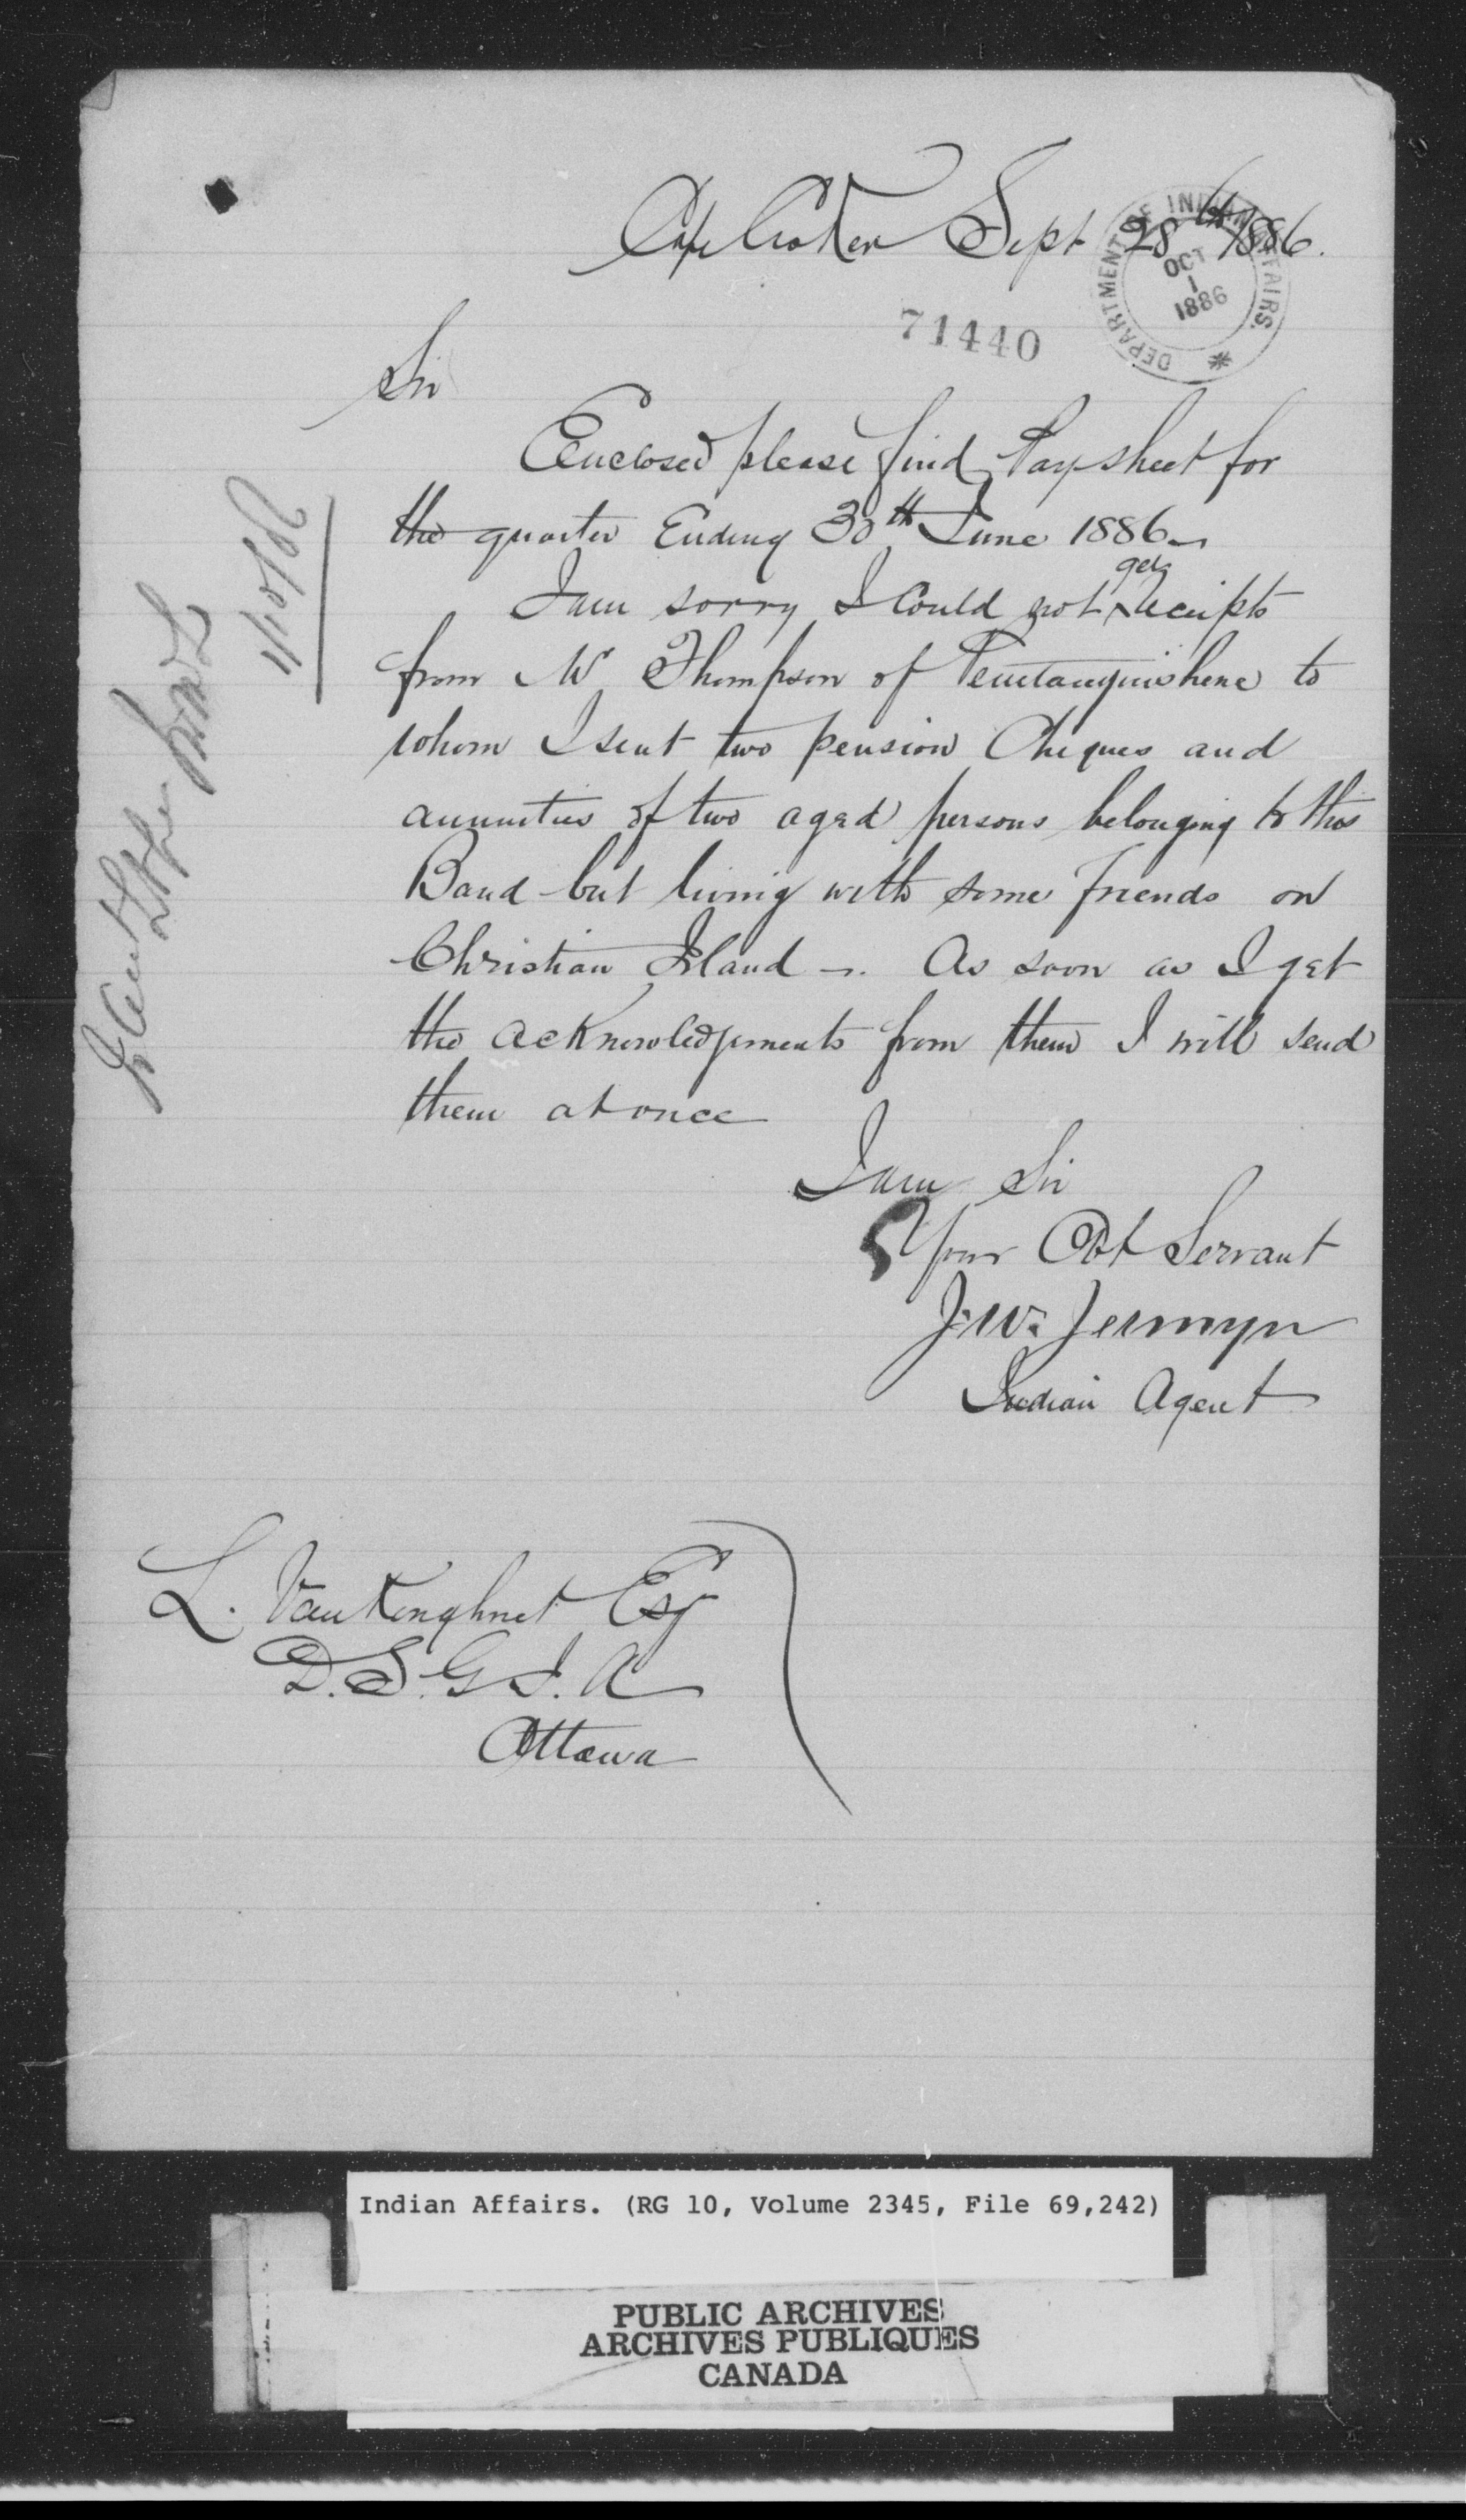 Cape Croker Sept 28th 1886.
DEPARTMENT OF INDIAN AFFAIRS.
OCT
1
1886
71440
Sir
Enclosed please find Pay sheet for
the quarter Ending 30th June 1886
I am sorry I Could not get Receipts
from Mr Thompson of Penetanguishene to
whom I sent two pension Cheques and
annuities of two aged persons belonging to this
Band but living with some friends on
Christian Island -. As soon as I get
the acknowledgements from them I will send
them at once
I am Sir
Your Obt Servant
J. W. Jermyn
Indian Agent
L. VanKoughnet Esq
D. S. G I. A
Ottawa
1/10/86
Indian Affairs. (RG 10, Volume 2345, File 69,242)
PUBLIC ARCHIVES
ARCHIVES PUBLIQUES
CANADA